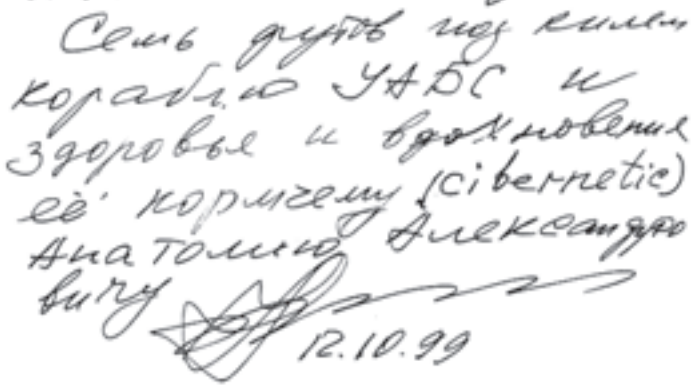 Семь футов под килем
кораблю УАБС и
здоровья и вдохновения
её кормчему (cibernetic)
Анатолию Александро
вичу
12.10.99